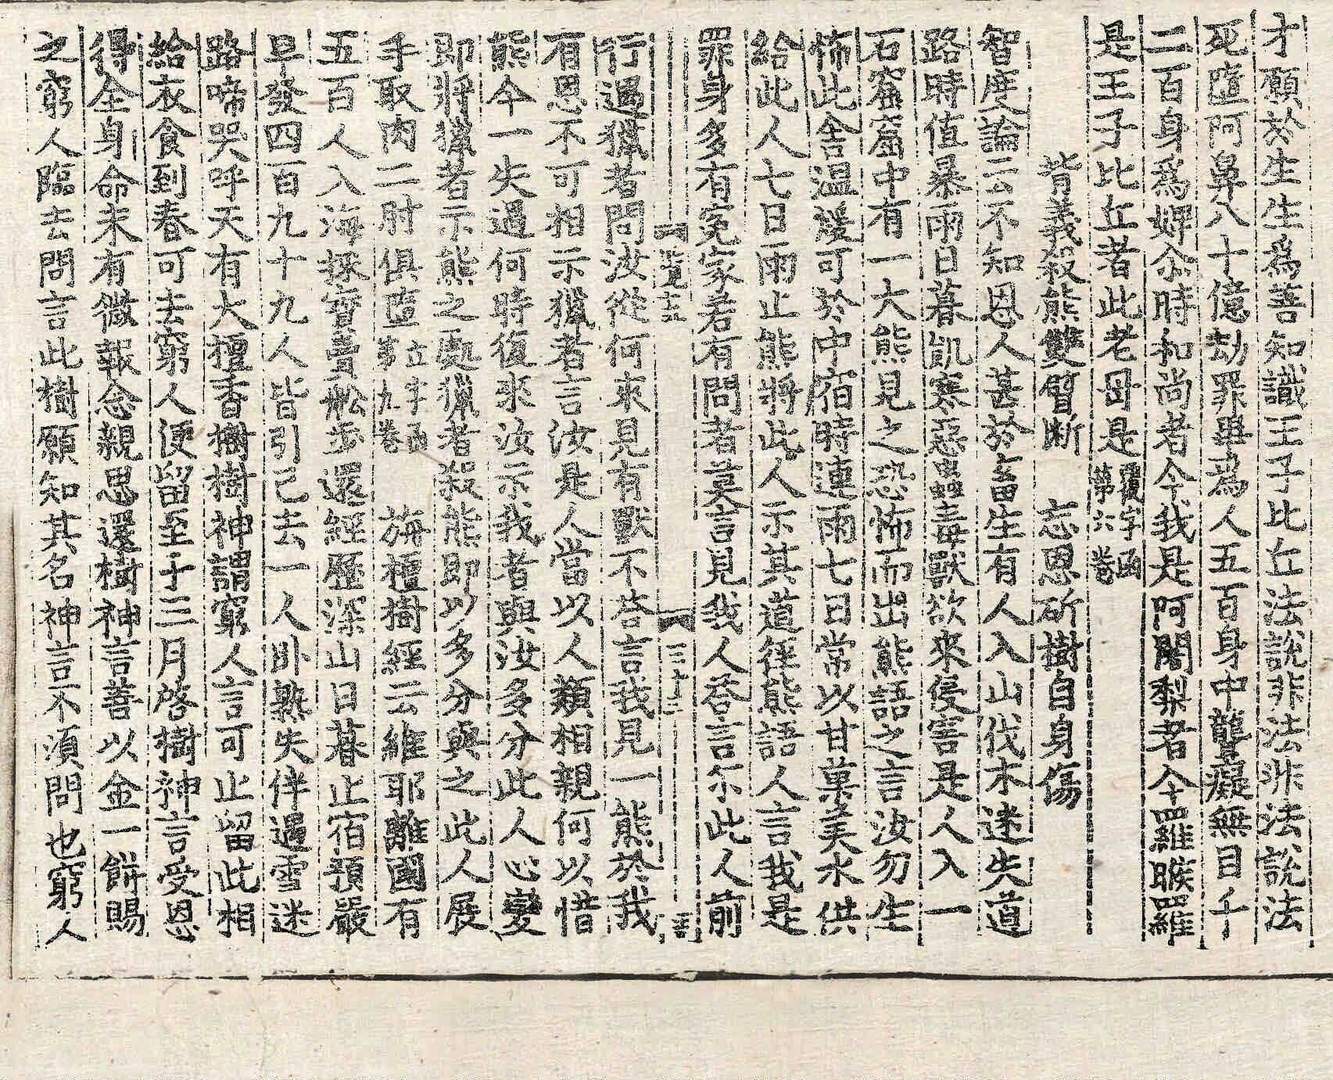 才願於生生為善知識王子比丘法說非法非法說法
死墮阿鼻八十億劫罪畢為人五百身中聾癡無目千
二百身為婢尒時和尚者今我是阿闍梨者今羅睺羅
是王子比丘者此老母是 覆字函第六卷
背義殺熊雙臂斷 忘恩斫樹自身傷
智度論云不知恩人甚於畜生有人入山伐木迷失道
路時值暴雨日暮飢寒惡蟲毒獸欲來侵害是人入一
石窟窟中有一大熊見之恐怖而出熊語之言汝勿生
怖此舍溫煖可於中宿時連雨七日常以甘菓美水供
給此人七日雨止熊將此人示其道徑熊語人言我是
罪身多有冤家若有問者莫言見我人答言尒此人前
行遇獵者問汝從何來見有獸不答言我見一熊於我
有恩不可相示獵者言汝是人當以人類相親何以惜
熊今一失過何時復來汝示我者與汝多分此人心變
即將獵者示熊之處獵者殺熊即以多分與之此人展
手取肉二肘俱墮 立字函第九卷 旃檀樹經云維耶離國有
五百人入海採寶置舩步還經歷深山日暮止宿預嚴
早發四百九十九人皆引已去一人臥熟失伴遇雪迷
路啼哭呼天有大檀香樹樹神謂窮人言可止留此相
給衣食到春可去窮人便留至于三月啓樹神言受恩
得全身命未有微報念親思還樹神言善以金一餅賜
之窮人臨去問言此樹願知其名神言不須問也窮人